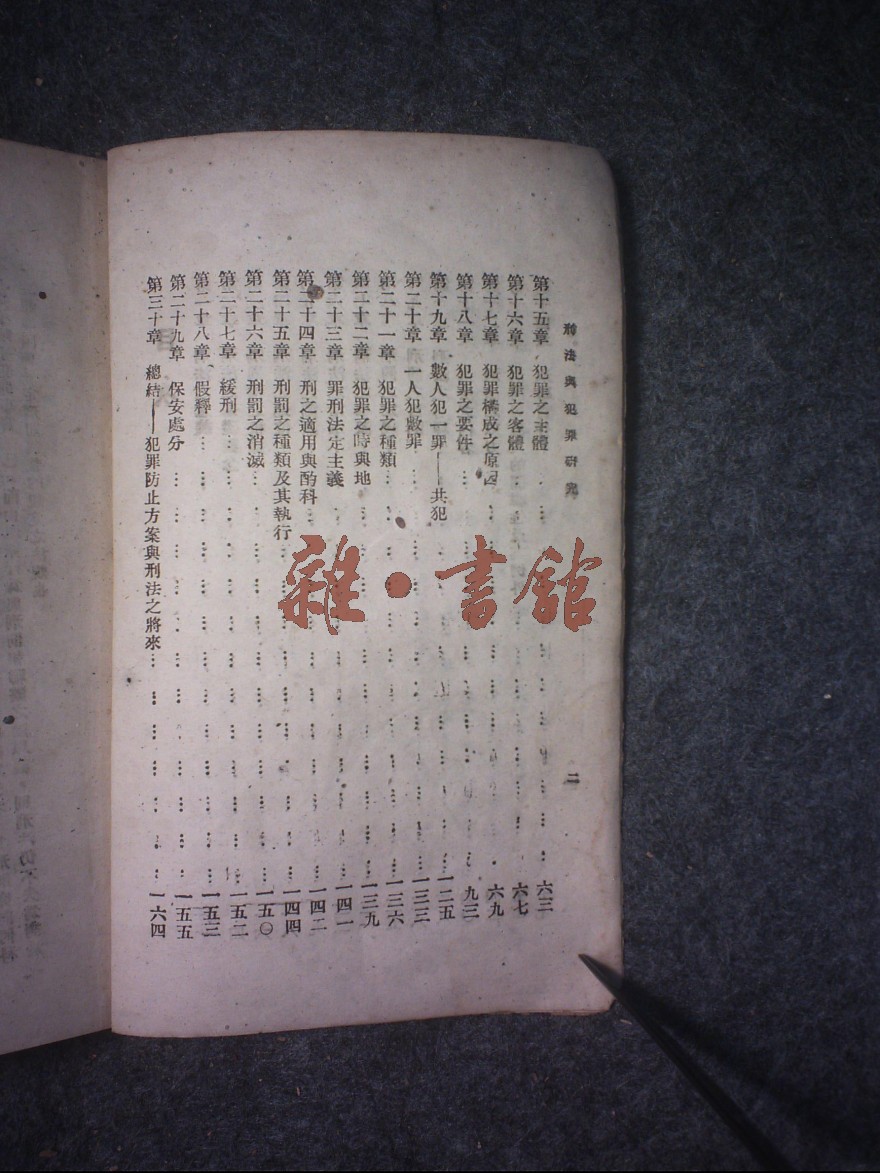 刑法與犯罪研究
二
第十五章 犯罪之主體 六三
第十六章 犯罪之客體 六七
第十七章 犯罪構成之原因 六九
第十八章 犯罪之要件 九三
第十九章 數人犯一罪——共犯 一二五
第二十章 一人犯數罪 一三三
第二十一章 犯罪之種類 一三六
第二十二章 犯罪之時與地 一三九
第二十三章 罪刑法定主義 一四一
第二十四章 刑之適用與酌科 一四二
第二十五章 刑罰之種類及其執行 一四四
第二十六章 刑罰之消滅 一五〇
第二十七章 緩刑 一五二
第二十八章 假釋 一五三
第二十九章 保安處分 一五五
第三十章 總結——犯罪防止方案與刑法之將來 一六四
雜·書館